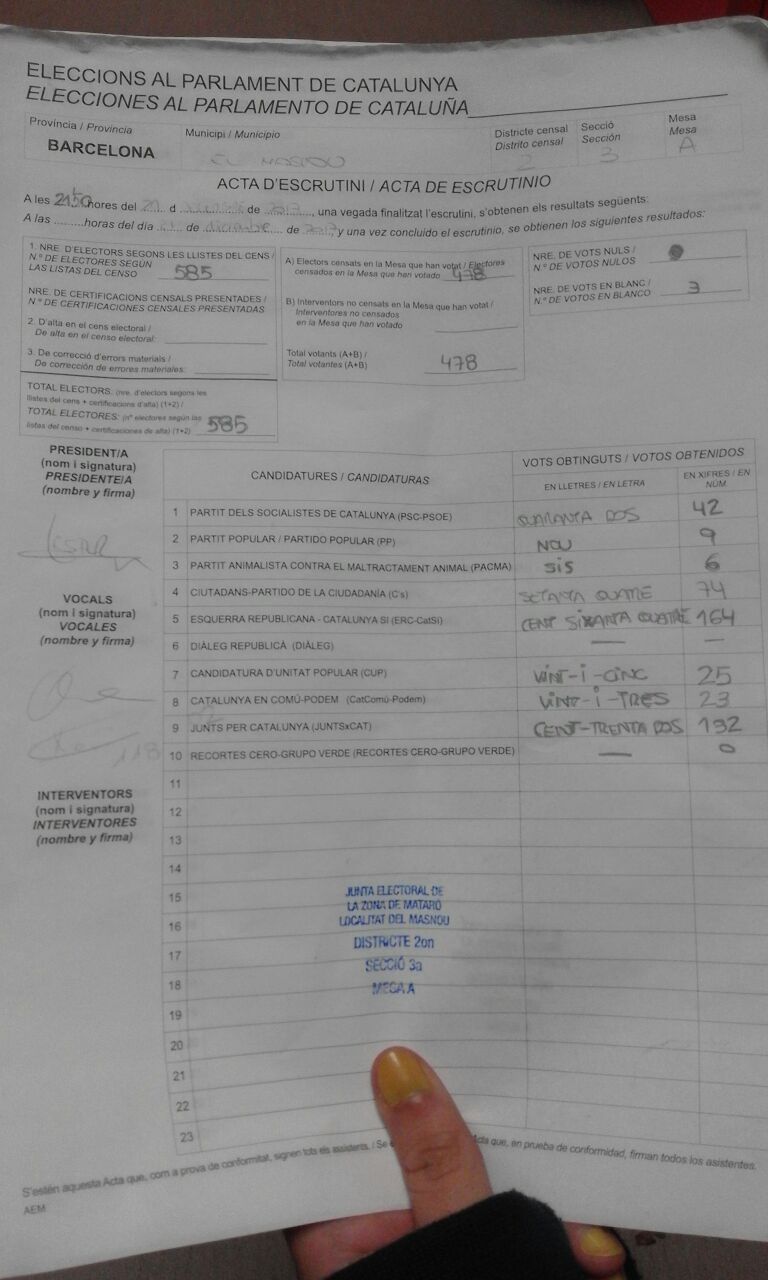 ELECCIONS AL PARLAMENT DE CATALUNYA
ELECCIONES AL PARLAMENTO DE CATALUÑA
Província / Provincia
BARCELONA
Municipi / Municipio
EL MASNOU
Districte censal
Distrito censal
2
Secció
Sección
3
Mesa
Mesa
A
ACTA D'ESCRUTINI / ACTA DE ESCRUTINIO
A les hores del 21 d de 2017, una vegada finalitzat l'escrutini, s'obtenen els resultats següents:
A las ..........horas del día 21 de diciembre de 2017, y una vez concluido el escrutinio, se obtienen los siguientes resultados:
1. NRE. D'ELECTORS SEGONS LES LLISTES DEL CENS /
N.º DE ELECTORES SEGÚN
LAS LISTAS DEL CENSO 585
NRE. DE CERTIFICACIONS CENSALS PRESENTADES /
N.º DE CERTIFICACIONES CENSALES PRESENTADAS
2. D'alta en el cens electoral /
De alta en el censo electoral:
3. De correcció d'errors materials /
De corrección de errores materiales:
TOTAL ELECTORS: (nre. d'electors segons les
llistes del cens + certificacions d'alta) (1+2) /
TOTAL ELECTORES: (nº electores según las
listas del censo + certificaciones de alta) (1+2) 585
A) Electors censats en la Mesa que han votat / Electores
censados en la Mesa que han votado 478
B) Interventors no censats en la Mesa que han votat /
Interventores no censados
en la Mesa que han votado
Total votants (A+B) /
Total votantes (A+B) 478
NRE. DE VOTS NULS /
N.º DE VOTOS NULOS
NRE. DE VOTS EN BLANC /
N.º DE VOTOS EN BLANCO 3
PRESIDENT/A
(nom i signatura)
PRESIDENTE/A
(nombre y firma)
VOCALS
(nom i signatura)
VOCALES
(nombre y firma)
INTERVENTORS
(nom i signatura)
INTERVENTORES
(nombre y firma)
CANDIDATURES / CANDIDATURAS
VOTS OBTINGUTS / VOTOS OBTENIDOS
EN LLETRES / EN LETRA
EN XIFRES / EN NÚM
1 PARTIT DELS SOCIALISTES DE CATALUNYA (PSC-PSOE) QUARANTA DOS 42
2 PARTIT POPULAR / PARTIDO POPULAR (PP) NOU 9
3 PARTIT ANIMALISTA CONTRA EL MALTRACTAMENT ANIMAL (PACMA) SIS 6
4 CIUTADANS-PARTIDO DE LA CIUDADANÍA (C's) SETANTA QUATRE 74
5 ESQUERRA REPUBLICANA - CATALUNYA SÍ (ERC-CatSí) CENT SIXANTA QUATRE 164
6 DIÀLEG REPUBLICÀ (DIÀLEG) — —
7 CANDIDATURA D'UNITAT POPULAR (CUP) VINT-I-CINC 25
8 CATALUNYA EN COMÚ-PODEM (CatComú-Podem) VINT-I-TRES 23
9 JUNTS PER CATALUNYA (JUNTSxCAT) CENT-TRENTA DOS 132
10 RECORTES CERO-GRUPO VERDE (RECORTES CERO-GRUPO VERDE) — 0
11
12
13
14
15
16
17
18
19
20
21
22
23
JUNTA ELECTORAL DE
LA ZONA DE MATARÓ
LOCALITAT DEL MASNOU
DISTRICTE 2on
SECCIÓ 3a
MESA A
S'estén aquesta Acta que, com a prova de conformitat, signen tots els assistents. / Se Acta que, en prueba de conformidad, firman todos los asistentes.
AEM